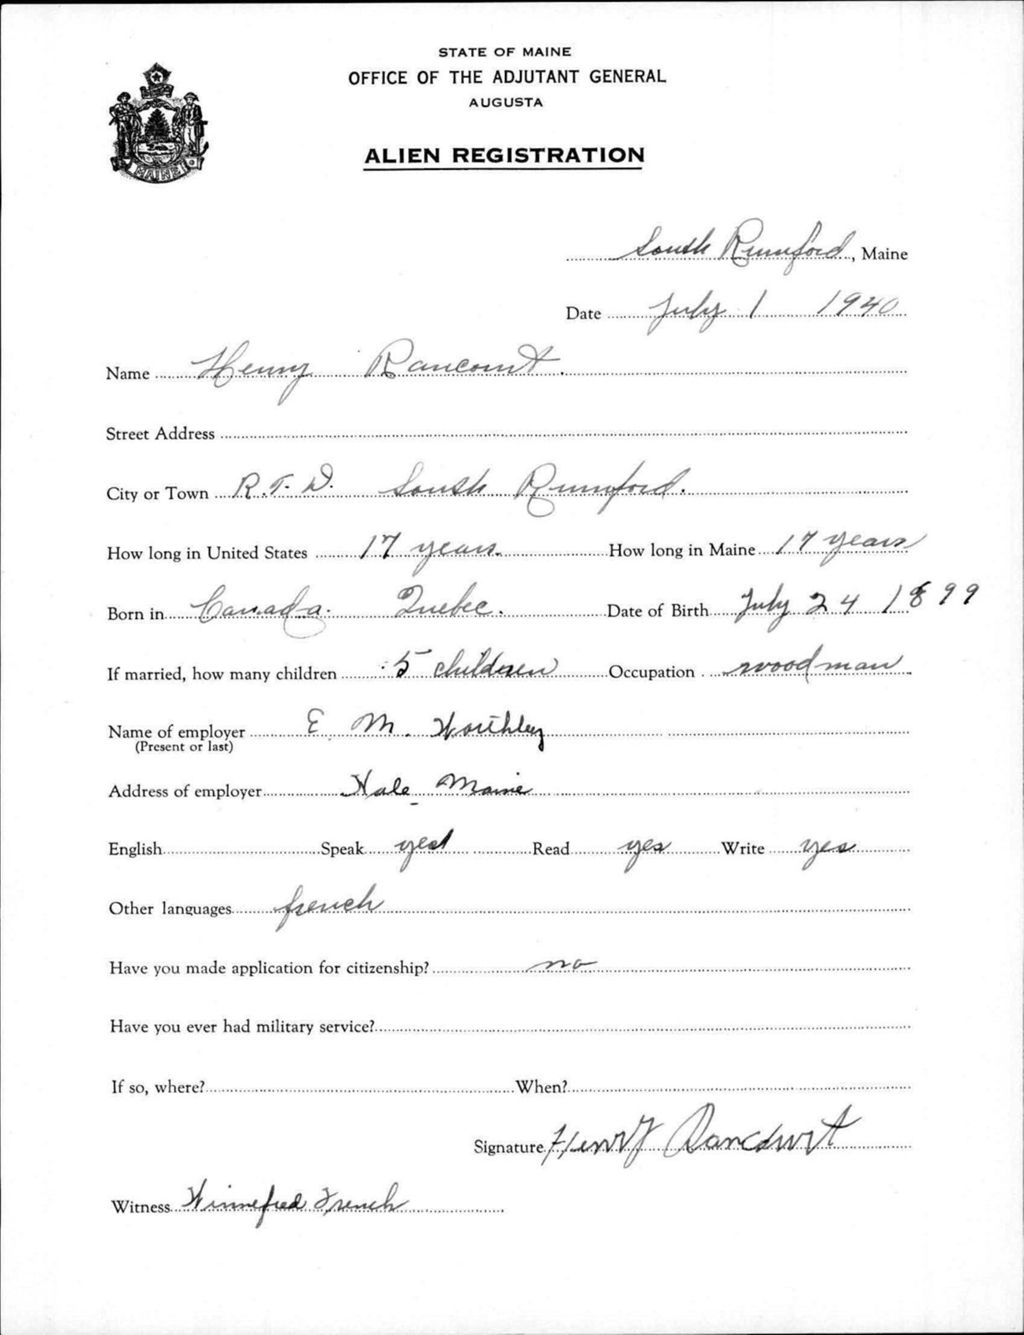 STATE OF MAINE
OFFICE OF THE ADJUTANT GENERAL
AUGUSTA
ALIEN REGISTRATION
MAINE
South Rumford, Maine
Date July 1 1940
Name Henry Rancourt.
Street Address
City or Town R.F.D. South Rumford.
How long in United States 17 years. How long in Maine 17 years
Born in Canada. Quebec. Date of Birth July 24 1899
If married, how many children 5 children Occupation woodman
Name of employer E. M. Worthley
(Present or last)
Address of employer Hale Maine
English Speak yes Read yes Write yes
Other languages french
Have you made application for citizenship? no
Have you ever had military service?
If so, where? When?
Signature Henry Rancourt
Witness Winnefred French